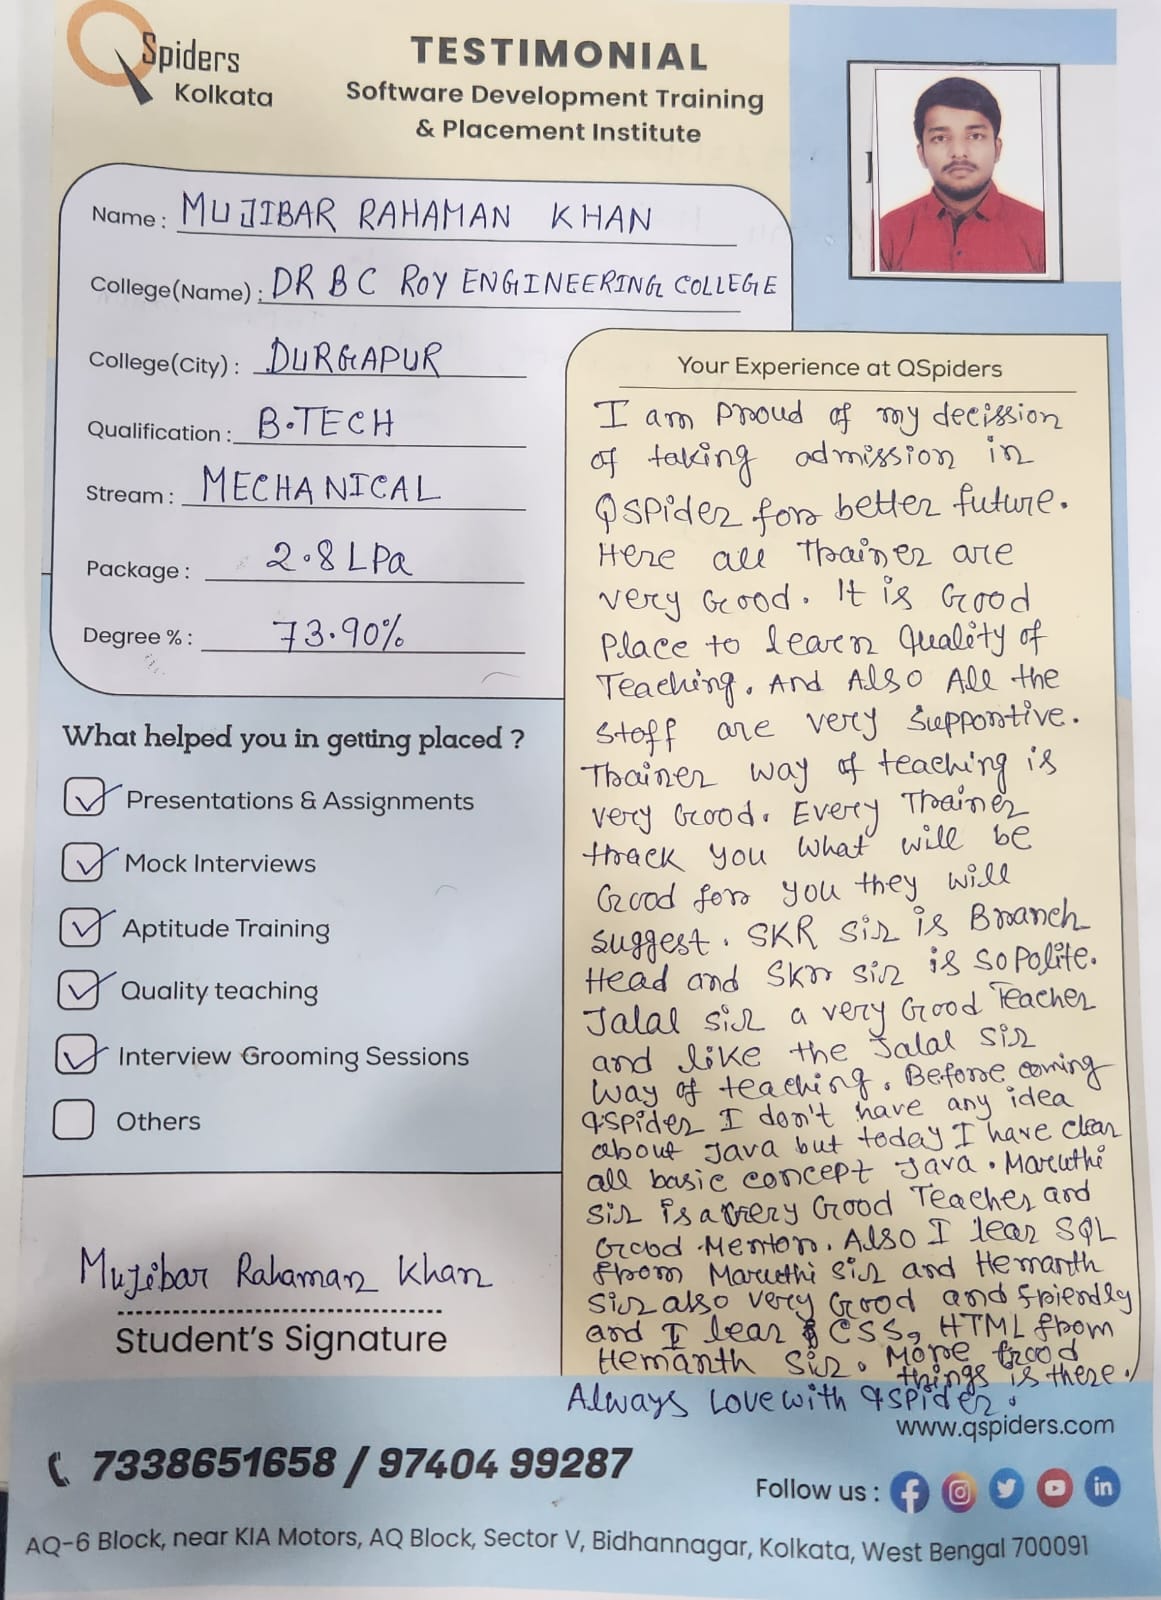 QSpiders
Kolkata
TESTIMONIAL
Software Development Training
& Placement Institute
Name : MUJIBAR RAHAMAN KHAN
College(Name) : DR B C ROY ENGINEERING COLLEGE
College(City) : DURGAPUR
Qualification : B.TECH
Stream : MECHANICAL
Package : 2.8 LPa
Degree % : 73.90%
What helped you in getting placed ?
Presentations & Assignments
Mock Interviews
Aptitude Training
Quality teaching
Interview Grooming Sessions
Others
Mujibar Rahaman Khan
Student's Signature
Your Experience at QSpiders
I am proud of my decission
of taking admission in
QSPider for better future.
Here all Trainer are
very Good. It is Good
Place to learn Quality of
Teaching. And Also All the
Staff are very Supportive.
Trainer way of teaching is
very Good. Every Trainer
track you what will be
Good for you they will
suggest. SKR sir is Branch
Head and Skr sir is so Polite.
Jalal sir a very Good Teacher
and like the Jalal Sir
way of teaching. Before coming
qspider I don't have any idea
about Java but today I have clear
all basic concept Java. Maruthi
sir is a very Good Teacher and
Good Mentor. Also I lear SQL
from Maruthi Sir and Hemanth
Sir also very Good and friendly
and I lear CSS, HTML from
Hemanth Sir. More Good
things is there.
Always Love with qspider.
www.qspiders.com
7338651658 / 97404 99287
Follow us :
AQ-6 Block, near KIA Motors, AQ Block, Sector V, Bidhannagar, Kolkata, West Bengal 700091